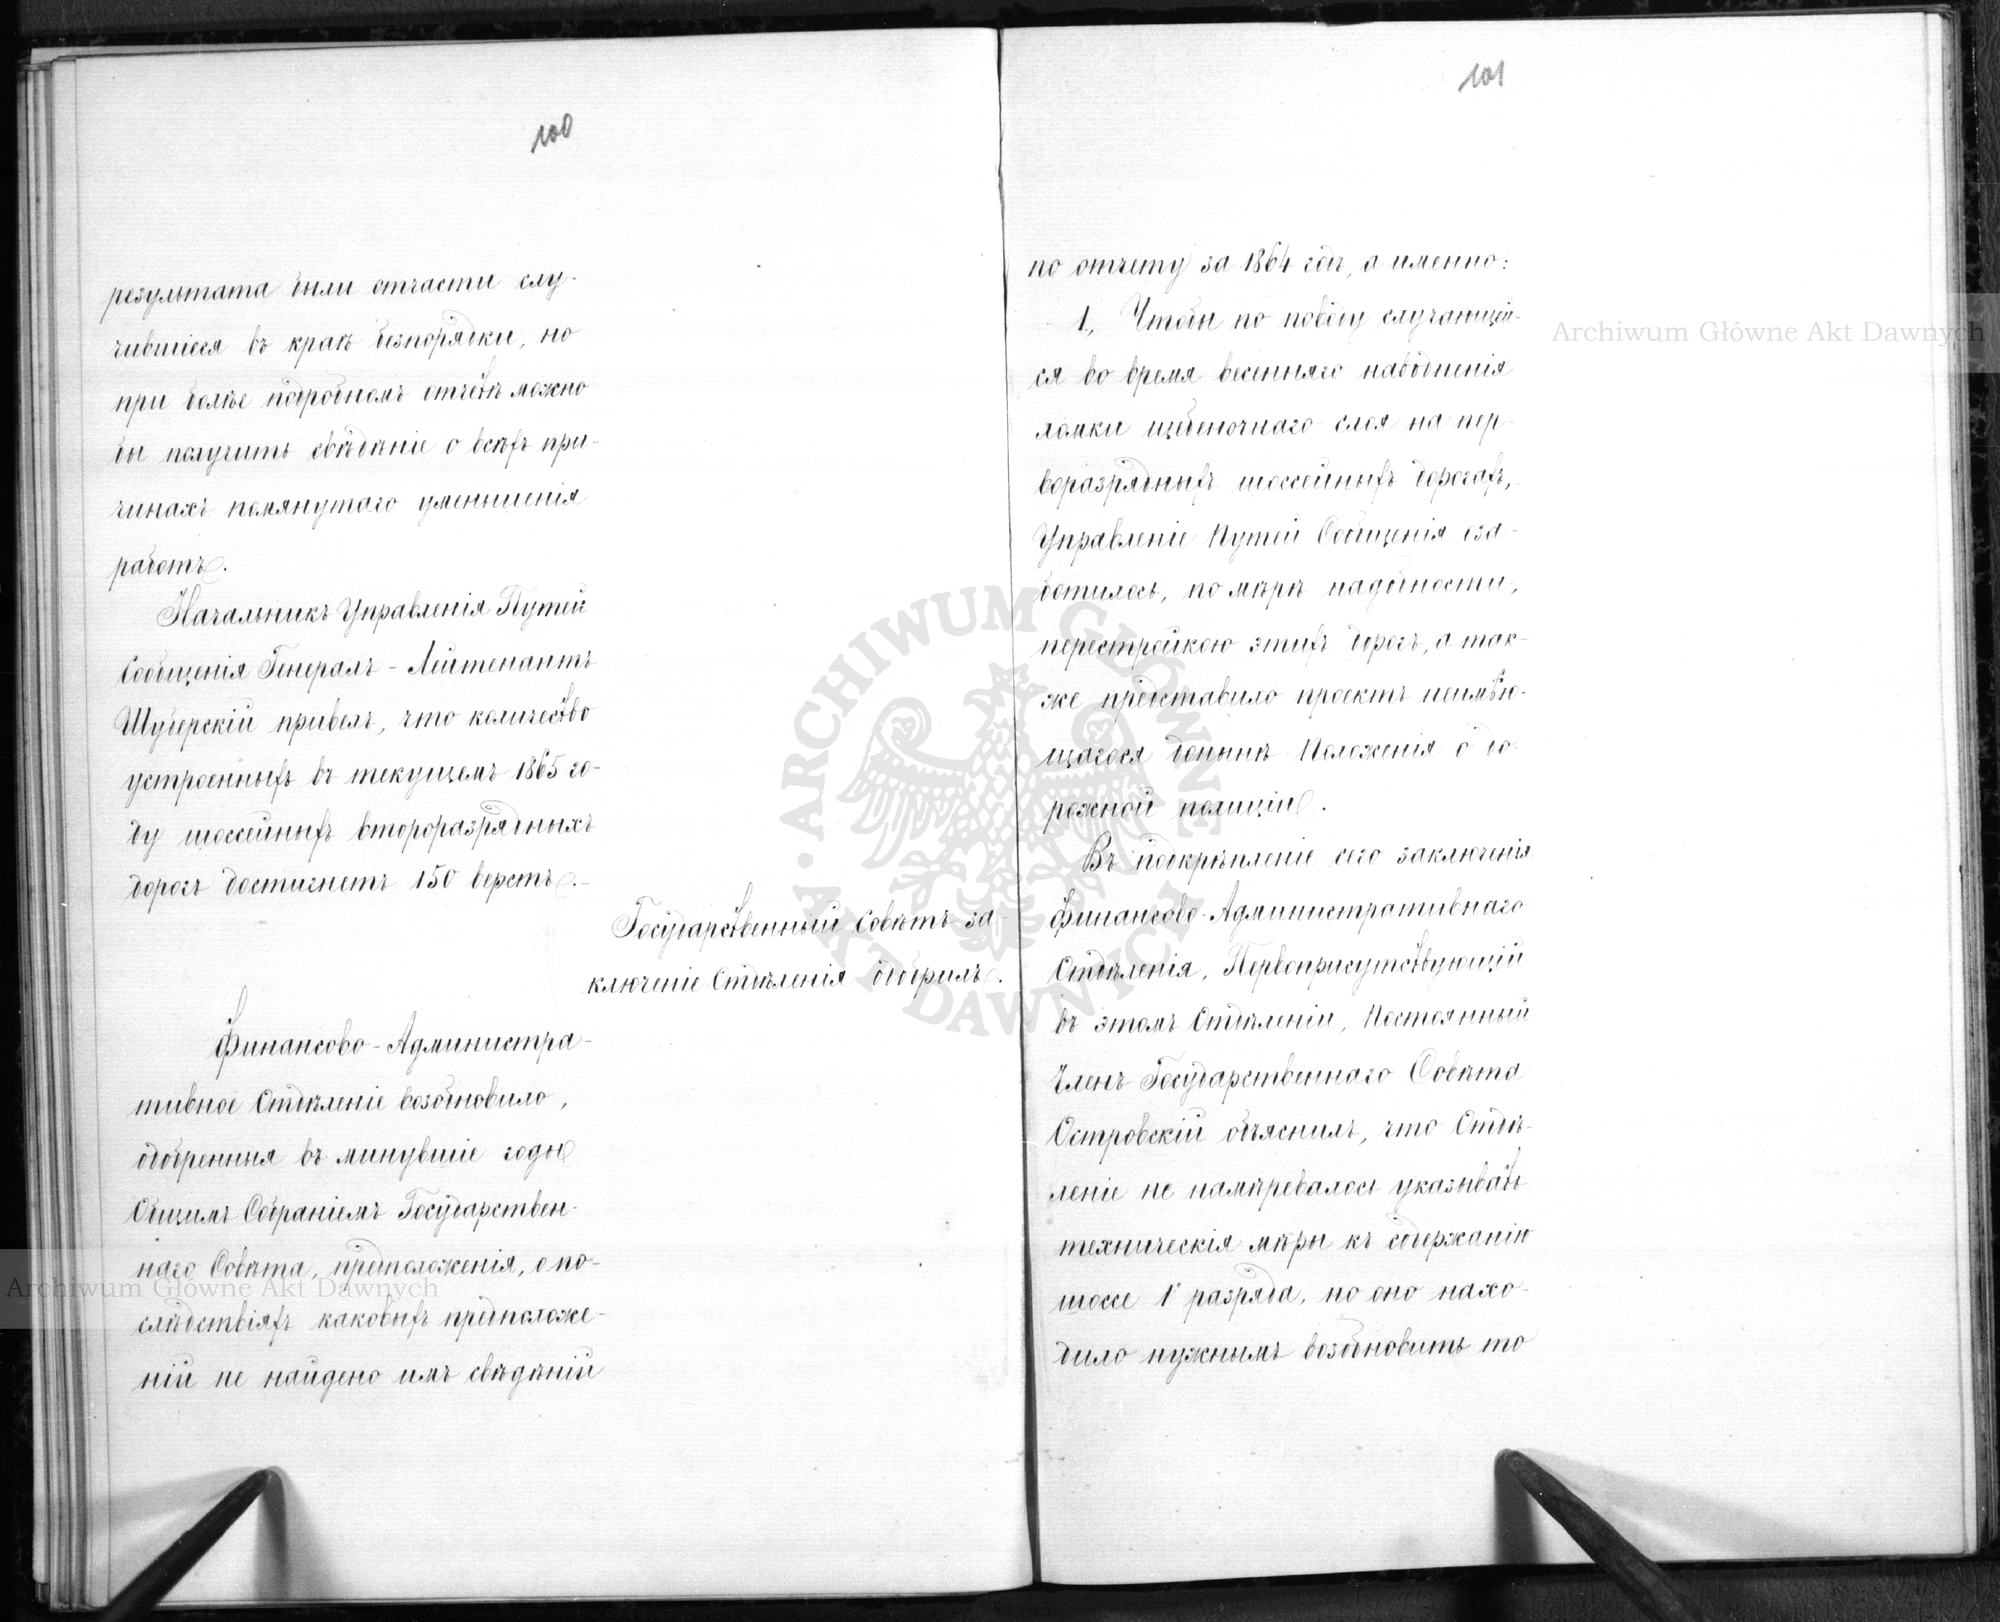 100
результата были отчасти слу-
чившіеся въ краѣ безпорядки, но
при болѣе подробномъ отчетѣ можно
бы получить свѣдѣніе о всѣхъ при-
чинахъ помянутаго уменьшенія
работъ.
Начальникъ Управленія Путей
Сообщенія Генералъ-Лейтенантъ
Шуберскій привелъ, что количество
устроенныхъ въ текущемъ 1865 го-
ду шоссейныхъ второразрядныхъ
дорогъ достигнетъ 150 верстъ.
Государственный Совѣтъ за-
ключеніе Отдѣленія одобрилъ.
Финансово-Администра-
тивное Отдѣленіе возобновило,
одобренныя въ минувшіе годы
Общимъ Собраніемъ Государствен-
наго Совѣта, предположенія, о по-
слѣдствіяхъ каковыхъ предположе-
ній не найдено имъ свѣдѣній
101
по отчету за 1864 годъ, а именно:
1., Чтобы по поводу случающей-
ся во время весенняго наводненія
ломки щебеночнаго слоя на пер-
воразрядныхъ шоссейныхъ дорогахъ,
Управленіе Путей Сообщенія оза-
ботилось, по мѣрѣ надобности,
перестройкою этихъ дорогъ, а так-
же представило проектъ неимѣю-
щагося донынѣ Положенія о до-
рожной полиціи.
Въ подкрѣпленіе сего заключенія
Финансово-Административнаго
Отдѣленія, Первоприсутствующій
въ этомъ Отдѣленіи, Постоянный
Членъ Государственнаго Совѣта
Островскій объяснилъ, что Отдѣ-
леніе не намѣревалось указывать
техническія мѣры къ содержанію
шоссе 1 разряда, но оно нахо-
дило нужнымъ возобновить то
Archiwum Główne Akt Dawnych
Archiwum Główne Akt Dawnych
ARCHIWUM GŁÓWNE AKT DAWNYCH